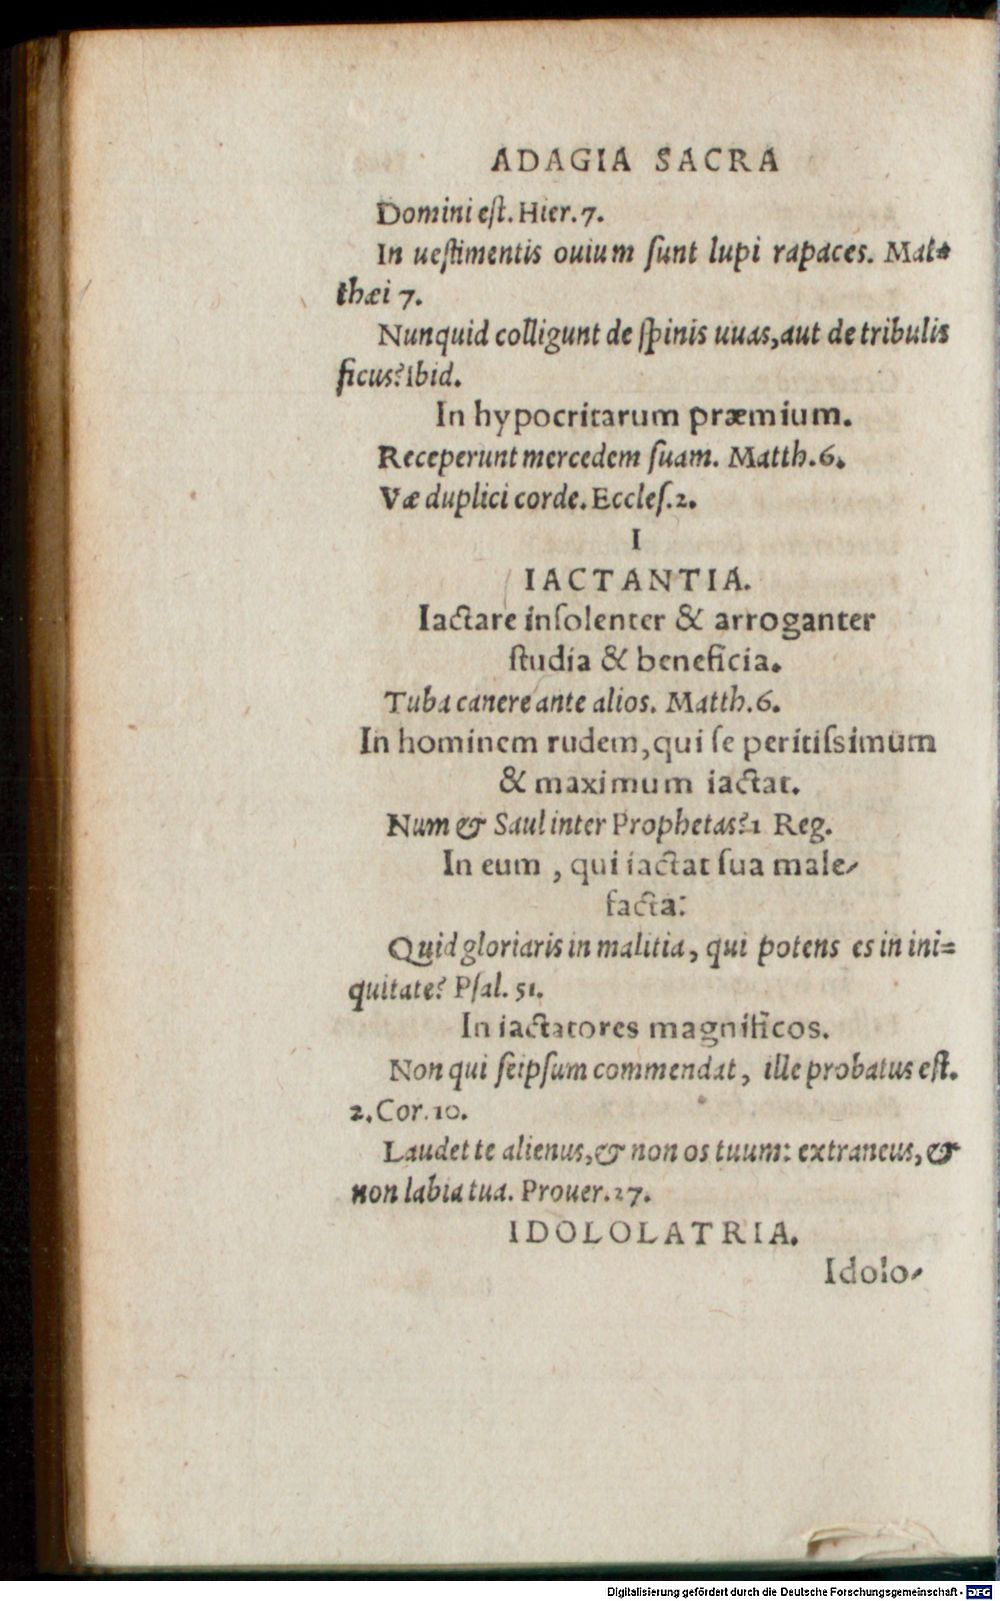 ADAGIA SACRA
Domini eſt. Hier. 7.
In ueſtimentis ouium ſunt lupi rapaces. Mat⸗
thæi 7.
Nunquid colligunt de ſpinis uuas, aut de tribulis
ficus? Ibid.
In hypocritarum præmium.
Receperunt mercedem ſuam. Matth. 6.
Væ duplici corde. Eccleſ. 2.
I
IACTANTIA.
Iactare inſolenter & arroganter
ſtudia & beneficia.
Tuba canere ante alios. Matth. 6.
In hominem rudem, qui ſe peritiſsimum
& maximum iactat.
Num & Saul inter Prophetas? 1 Reg.
In eum , qui iactat ſua male⸗
facta:
Quid gloriaris in malitia, qui potens es in ini⸗
quitate? Pſal. 51.
In iactatores magnificos.
Non qui ſeipſum commendat, ille probatus eſt.
2. Cor. 10.
Laudet te alienus, & non os tuum: extraneus, &
non labia tua. Prouer. 27.
IDOLOLATRIA.
Idolo⸗
Digitalisierung gefördert durch die Deutsche Forschungsgemeinschaft - DFG